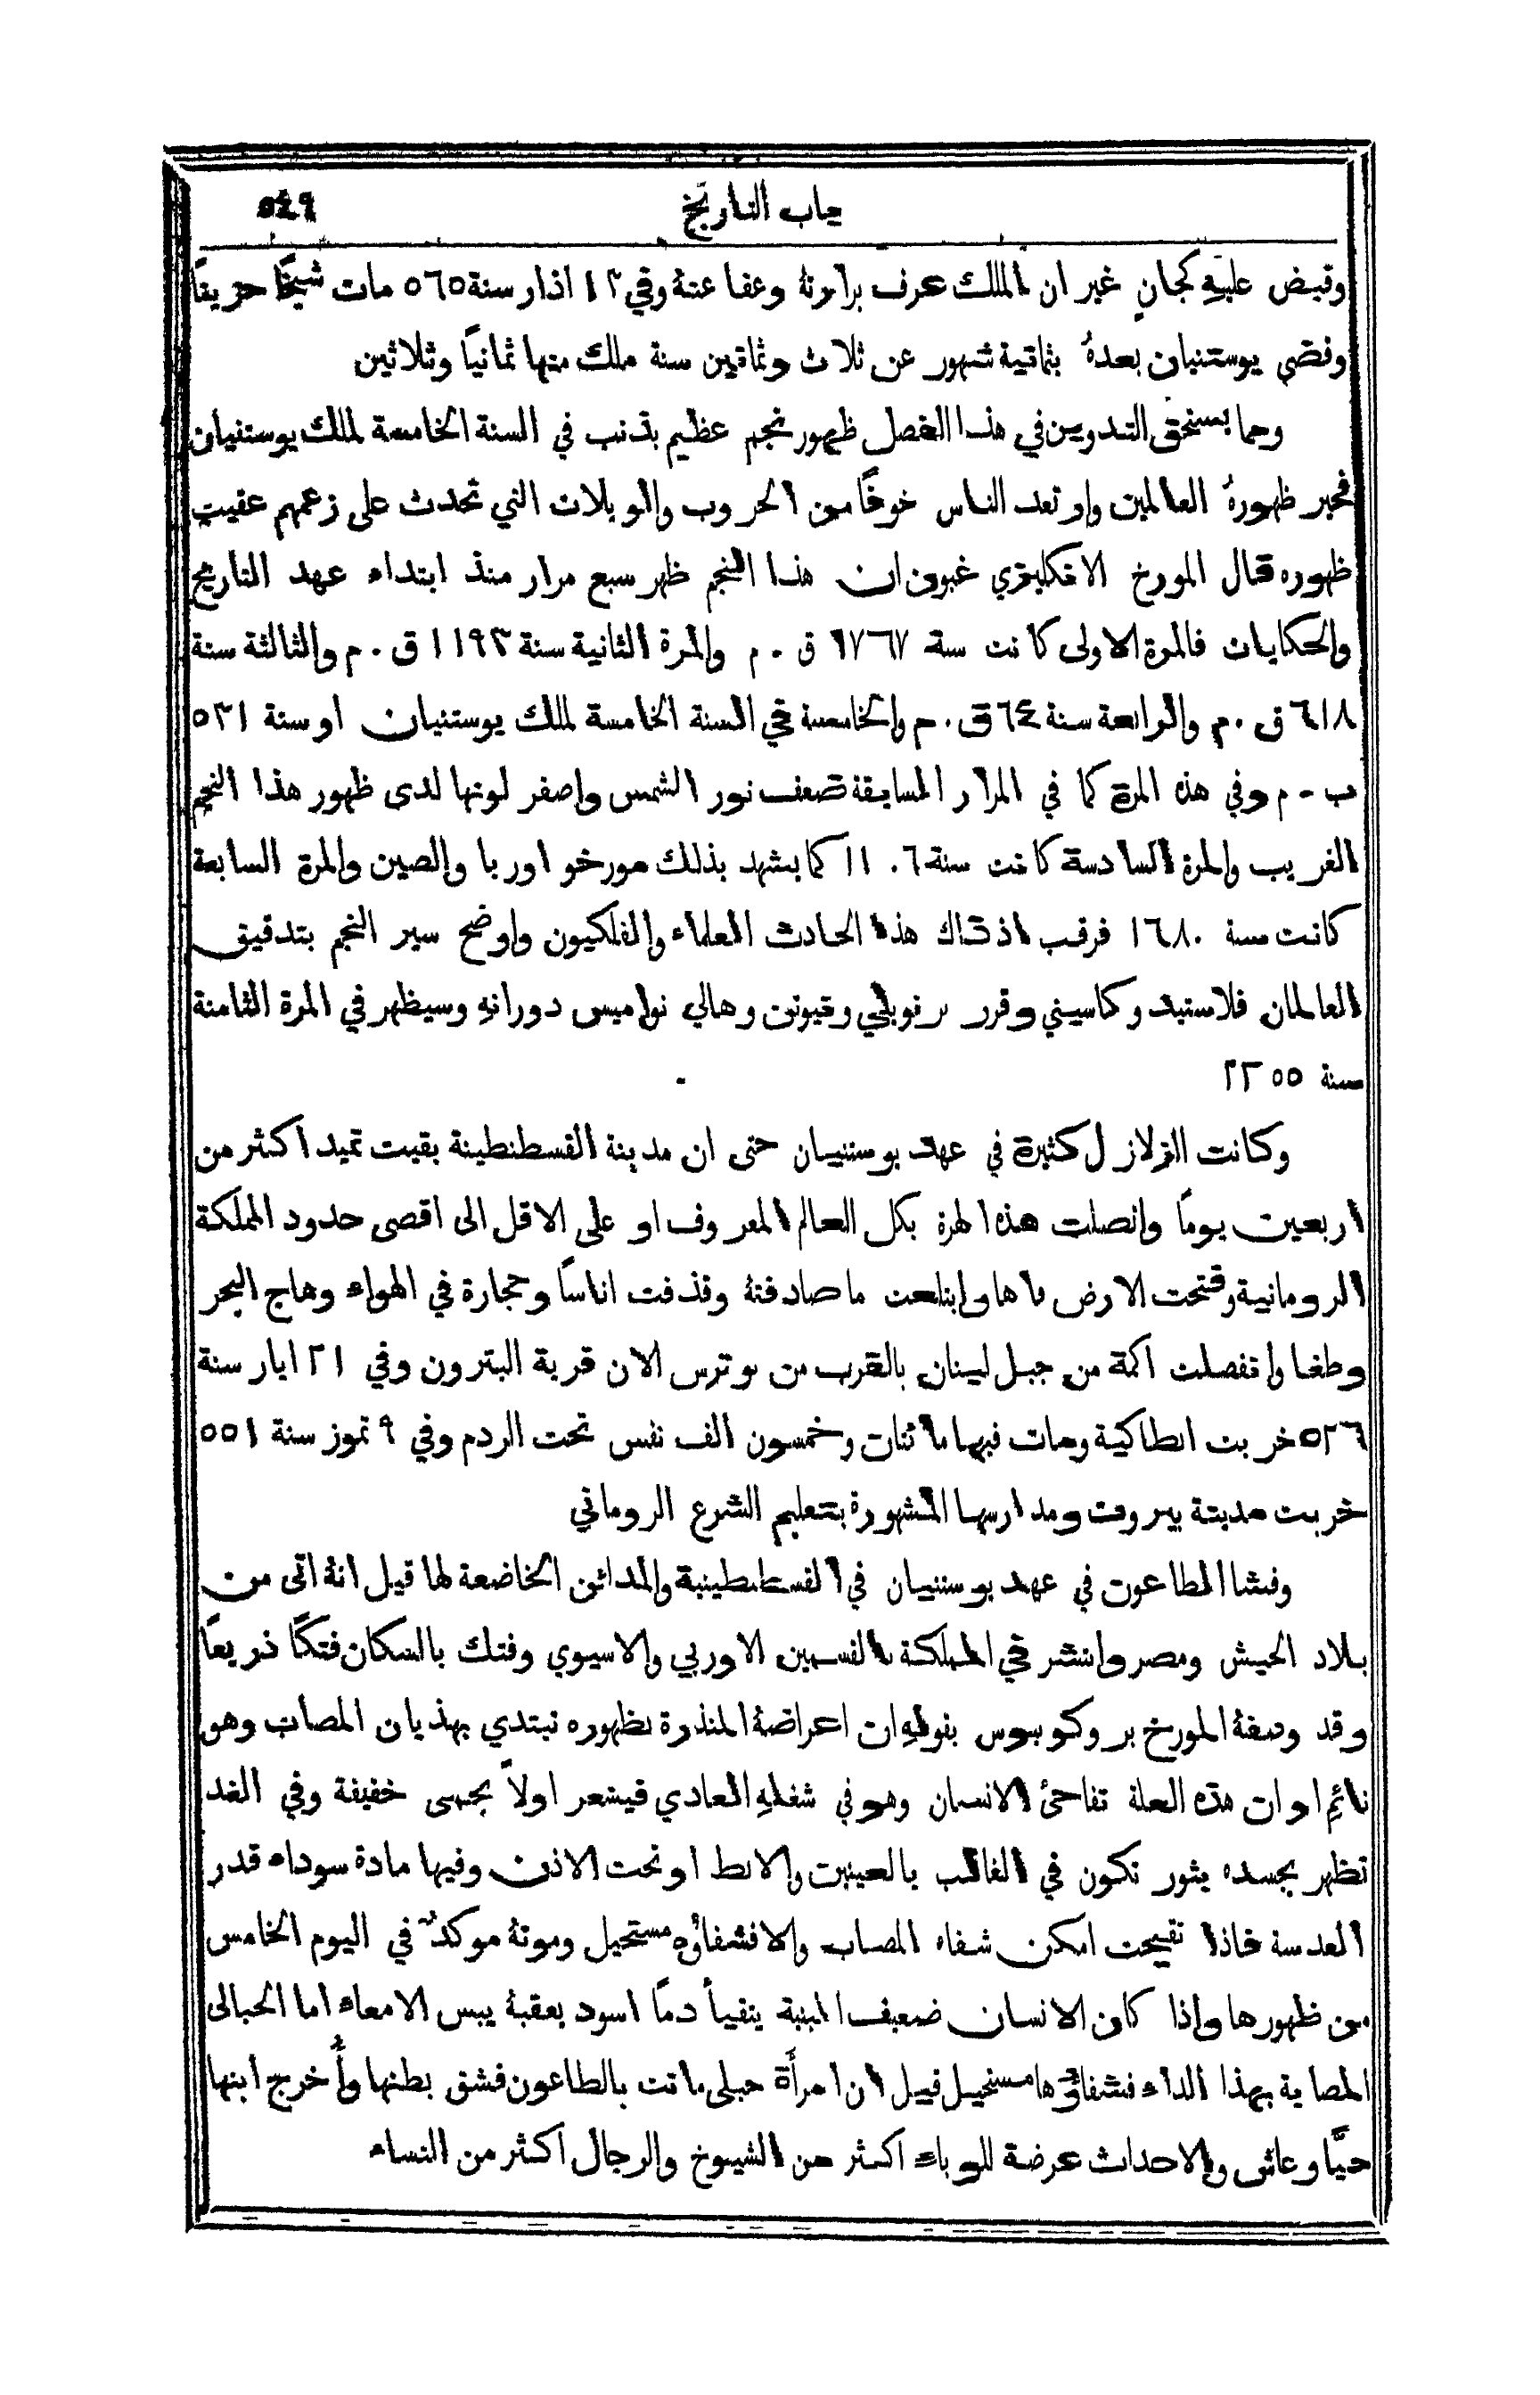 باب التاريخ ٥٤٩
وقبض عليهِ كجانٍ غير ان الملك عرف براءتهُ وعفا عنهُ وفي ١٣ اذار سنة ٥٦٥ مات شيخًا حزينًا
وقضي يوستنيان بعدهُ بثمانية شهور عن ثلاث وثمانين سنة ملك منها ثمانيًا وثلاثين
ومما يستحق التدوين في هذا الفصل ظهور نجم عظيم بذنب في السنة الخامسة لملك يوستنيان
فحير ظهورهُ العالمين وارتعد الناس خوفًا من الحروب والويلات التي تحدث على زعمهم عقيب
ظهوره قال المورخ الانكليزي غبون ان هذا النجم ظهر سبع مرار منذ ابتداء عهد التاريخ
والحكايات فالمرة الاولى كانت سنة ١٧٦٧ ق . م والمرة الثانية سنة ١١٩٣ ق . م والثالثة سنة
٦١٨ ق . م والرابعة سنة ٦٤ ق . م والخامسة في السنة الخامسة لملك يوستنيان او سنة ٥٣١
ب . م وفي هذه المرة كما في المرار السابقة ضعف نور الشمس واصفر لونها لدى ظهور هذا النجم
الغريب والمرة السادسة كانت سنة ١١٠٦ كما يشهد بذلك مورخو اوربا والصين والمرة السابعة
كانت سنة ١٦٨٠ فرقب اذ ذاك هذا الحادث العلماء والفلكيون واوضح سير النجم بتدقيق
العالمان فلامستيد وكاسيني وقرر برنويلي ونيوتن وهالي نواميس دورانهِ وسيظهر في المرة الثامنة
سنة ٢٣٥٥
وكانت الزلازل كثيرة في عهد يوستنيان حتى ان مدينة القسطنطينة بقيت تميد اكثر من
اربعين يومًا واتصلت هذه الهزة بكل العالم المعروف او على الاقل الى اقصى حدود المملكة
الرومانية وفتحت الارض فاها وابتلعت ما صادفتهُ وقذفت اناسًا وحجارة في الهواء وهاج البحر
وطغا وانفصلت اكمة من جبل لبنان بالقرب من بوترس الان قرية البترون وفي ٢١ ايار سنة
٥٢٦ خربت انطاكية ومات فيها مائتان وخمسون الف نفس تحت الردم وفي ٩ تموز سنة ٥٥١
خربت مدينة بيروت ومدارسها المشهورة بتعليم الشرع الروماني
وفشا الطاعون في عهد يوستنيان في القسطنطينية والمدائن الخاضعة لها قيل انهُ اتى من
بلاد الحبش ومصر وانتشر في المملكة بالقسمين الاوربي والاسيوي وفتك بالسكان فتكًا ذريعًا
وقد وصفهُ المورخ بروكوبيوس بقولهِ ان اعراضهُ المنذرة بظهوره تبتدي بهذيان المصاب وهو
نائم او ان هذه العلة تفاجئُ الانسان وهو في شغلهِ العادي فيشعر اولاً بحمى خفيفة وفي الغد
تظهر بجسده بثور تكون في الغالب بالعينين والابط او تحت الاذن وفيها مادة سوداء قدر
العدسة فاذا تقيحت امكن شفاء المصاب والا فشفاؤه مستحيل وموتهُ موكدٌ في اليوم الخامس
من ظهورها واذا كان الانسان ضعيف البنية يتقيأ دمًا اسود يعقبهُ يبس الامعاء اما الحبالى
المصابة بهذا الداء فشفاؤها مستحيل قيل ان امرأة حبلى ماتت بالطاعون فشق بطنها وأُخرج ابنها
حيًّا وعاش والاحداث عرضة للوباء اكثر من الشيوخ والرجال اكثر من النساء